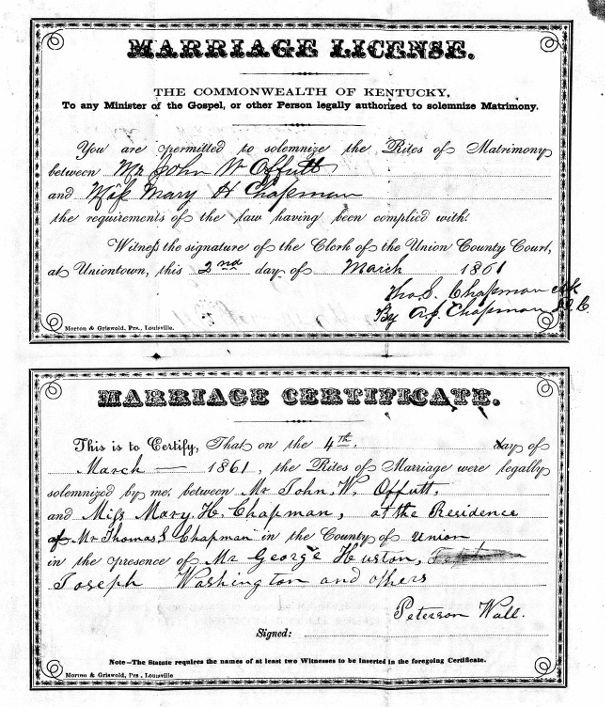 MARRIAGE LICENSE.
THE COMMONWEALTH OF KENTUCKY,
To any Minister of the Gospel, or other Person legally authorized to solemnize Matrimony.
You are permitted to solemnize the Rites of Matrimony
between Mr John W Offutt
and Miss Mary H Chapman
the requirements of the law having been complied with.
Witness the signature of the Clerk of the Union County Court,
at Uniontown, this 2nd day of March 1861
Thos. S. Chapman Clk
By Chapman D.C.
Morton & Griswold, Prs., Louisville.
MARRIAGE CERTIFICATE.
This is to Certify, That on the 4th. day of
March — 1861, the Rites of Marriage were legally
solemnized by me, between Mr John. W. Offutt,
and Miss Mary. H. Chapman, at the Residence
of Mr Thomas S Chapman in the County of Union
in the presence of Mr George Huston,
Joseph Washington and others
Peterson Wall.
Signed:
Note—The Statute requires the names of at least two Witnesses to be inserted in the foregoing Certificate.
Morton & Griswold, Prs., Louisville